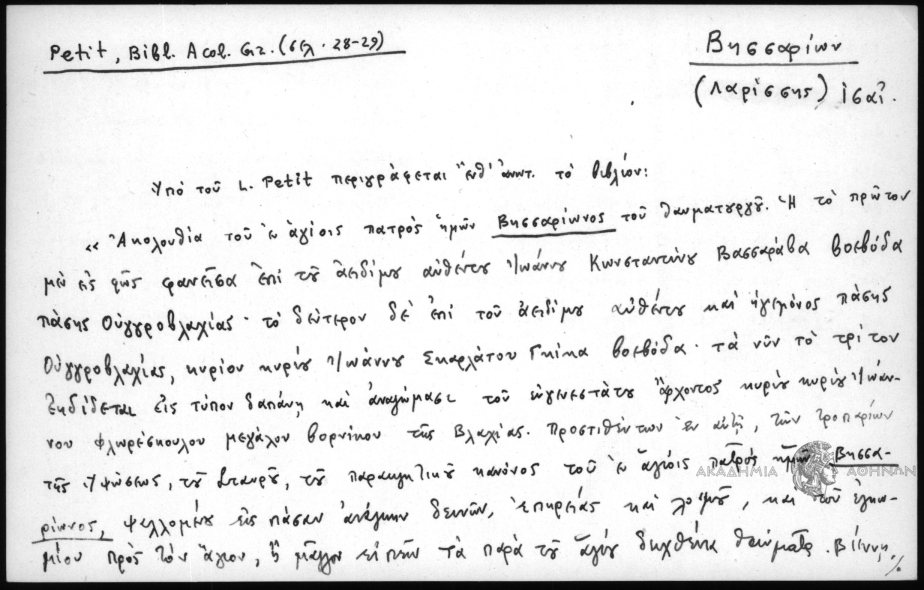 Petit, Bibl. Acol. Gr. (σελ. 28-29)
Βησσαρίων
(Λαρίσσης) ἰσαΐ.
Ὑπὸ τοῦ L. Petit περιγράφεται ἐνθ' ἀνωτ. τὸ βιβλίον:
« Ἀκολουθία τοῦ ἐν ἁγίοις πατρὸς ἡμῶν Βησσαρίωνος τοῦ θαυματουργοῦ. Ἡ τὸ πρῶτον
μὲν εἰς φῶς φανεῖσα ἐπὶ τοῦ ἀειδίμου αὐθέντου Ἰωάννου Κωνσταντίνου Βασσαράβα βοεβόδα
πάσης Οὐγγροβλαχίας· τὸ δεύτερον δὲ ἐπὶ τοῦ ἀειδίμου αὐθέντου καὶ ἡγεμόνος πάσης
Οὐγγροβλαχίας, κυρίου κυρίου Ἰωάννου Σκαρλάτου Γκίκα βοεβόδα· τὰ νῦν τὸ τρίτον
ἐκδίδεται εἰς τύπον δαπάνῃ καὶ ἀναλώμασι τοῦ εὐγενεστάτου ἄρχοντος κυρίου κυρίου Ἰωάν-
νου Φλωρέσκουλου μεγάλου βορνίκου τῆς Βλαχίας. Προστιθέντων ἐν αὐτῇ, τῶν τροπαρίων
τῆς ὑψώσεως, τοῦ σταυροῦ, τοῦ παρακλητικοῦ κανόνος τοῦ ἐν ἁγίοις πατρὸς ἡμῶν Βησσα-
ρίωνος, ψαλλομένου εἰς πᾶσαν ἀνάγκην δεινῶν, ἐπηρείας καὶ λοιμοῦ, καὶ τοῦ ἐγκω-
μίου πρὸς τὸν ἅγιον, ἢ μᾶλλον εἰπεῖν τὰ παρὰ τοῦ ἁγίου δειχθέντα θαύματα. Βιέννῃ,
./.
ΑΚΑΔΗΜΙΑ ΑΘΗΝΩΝ